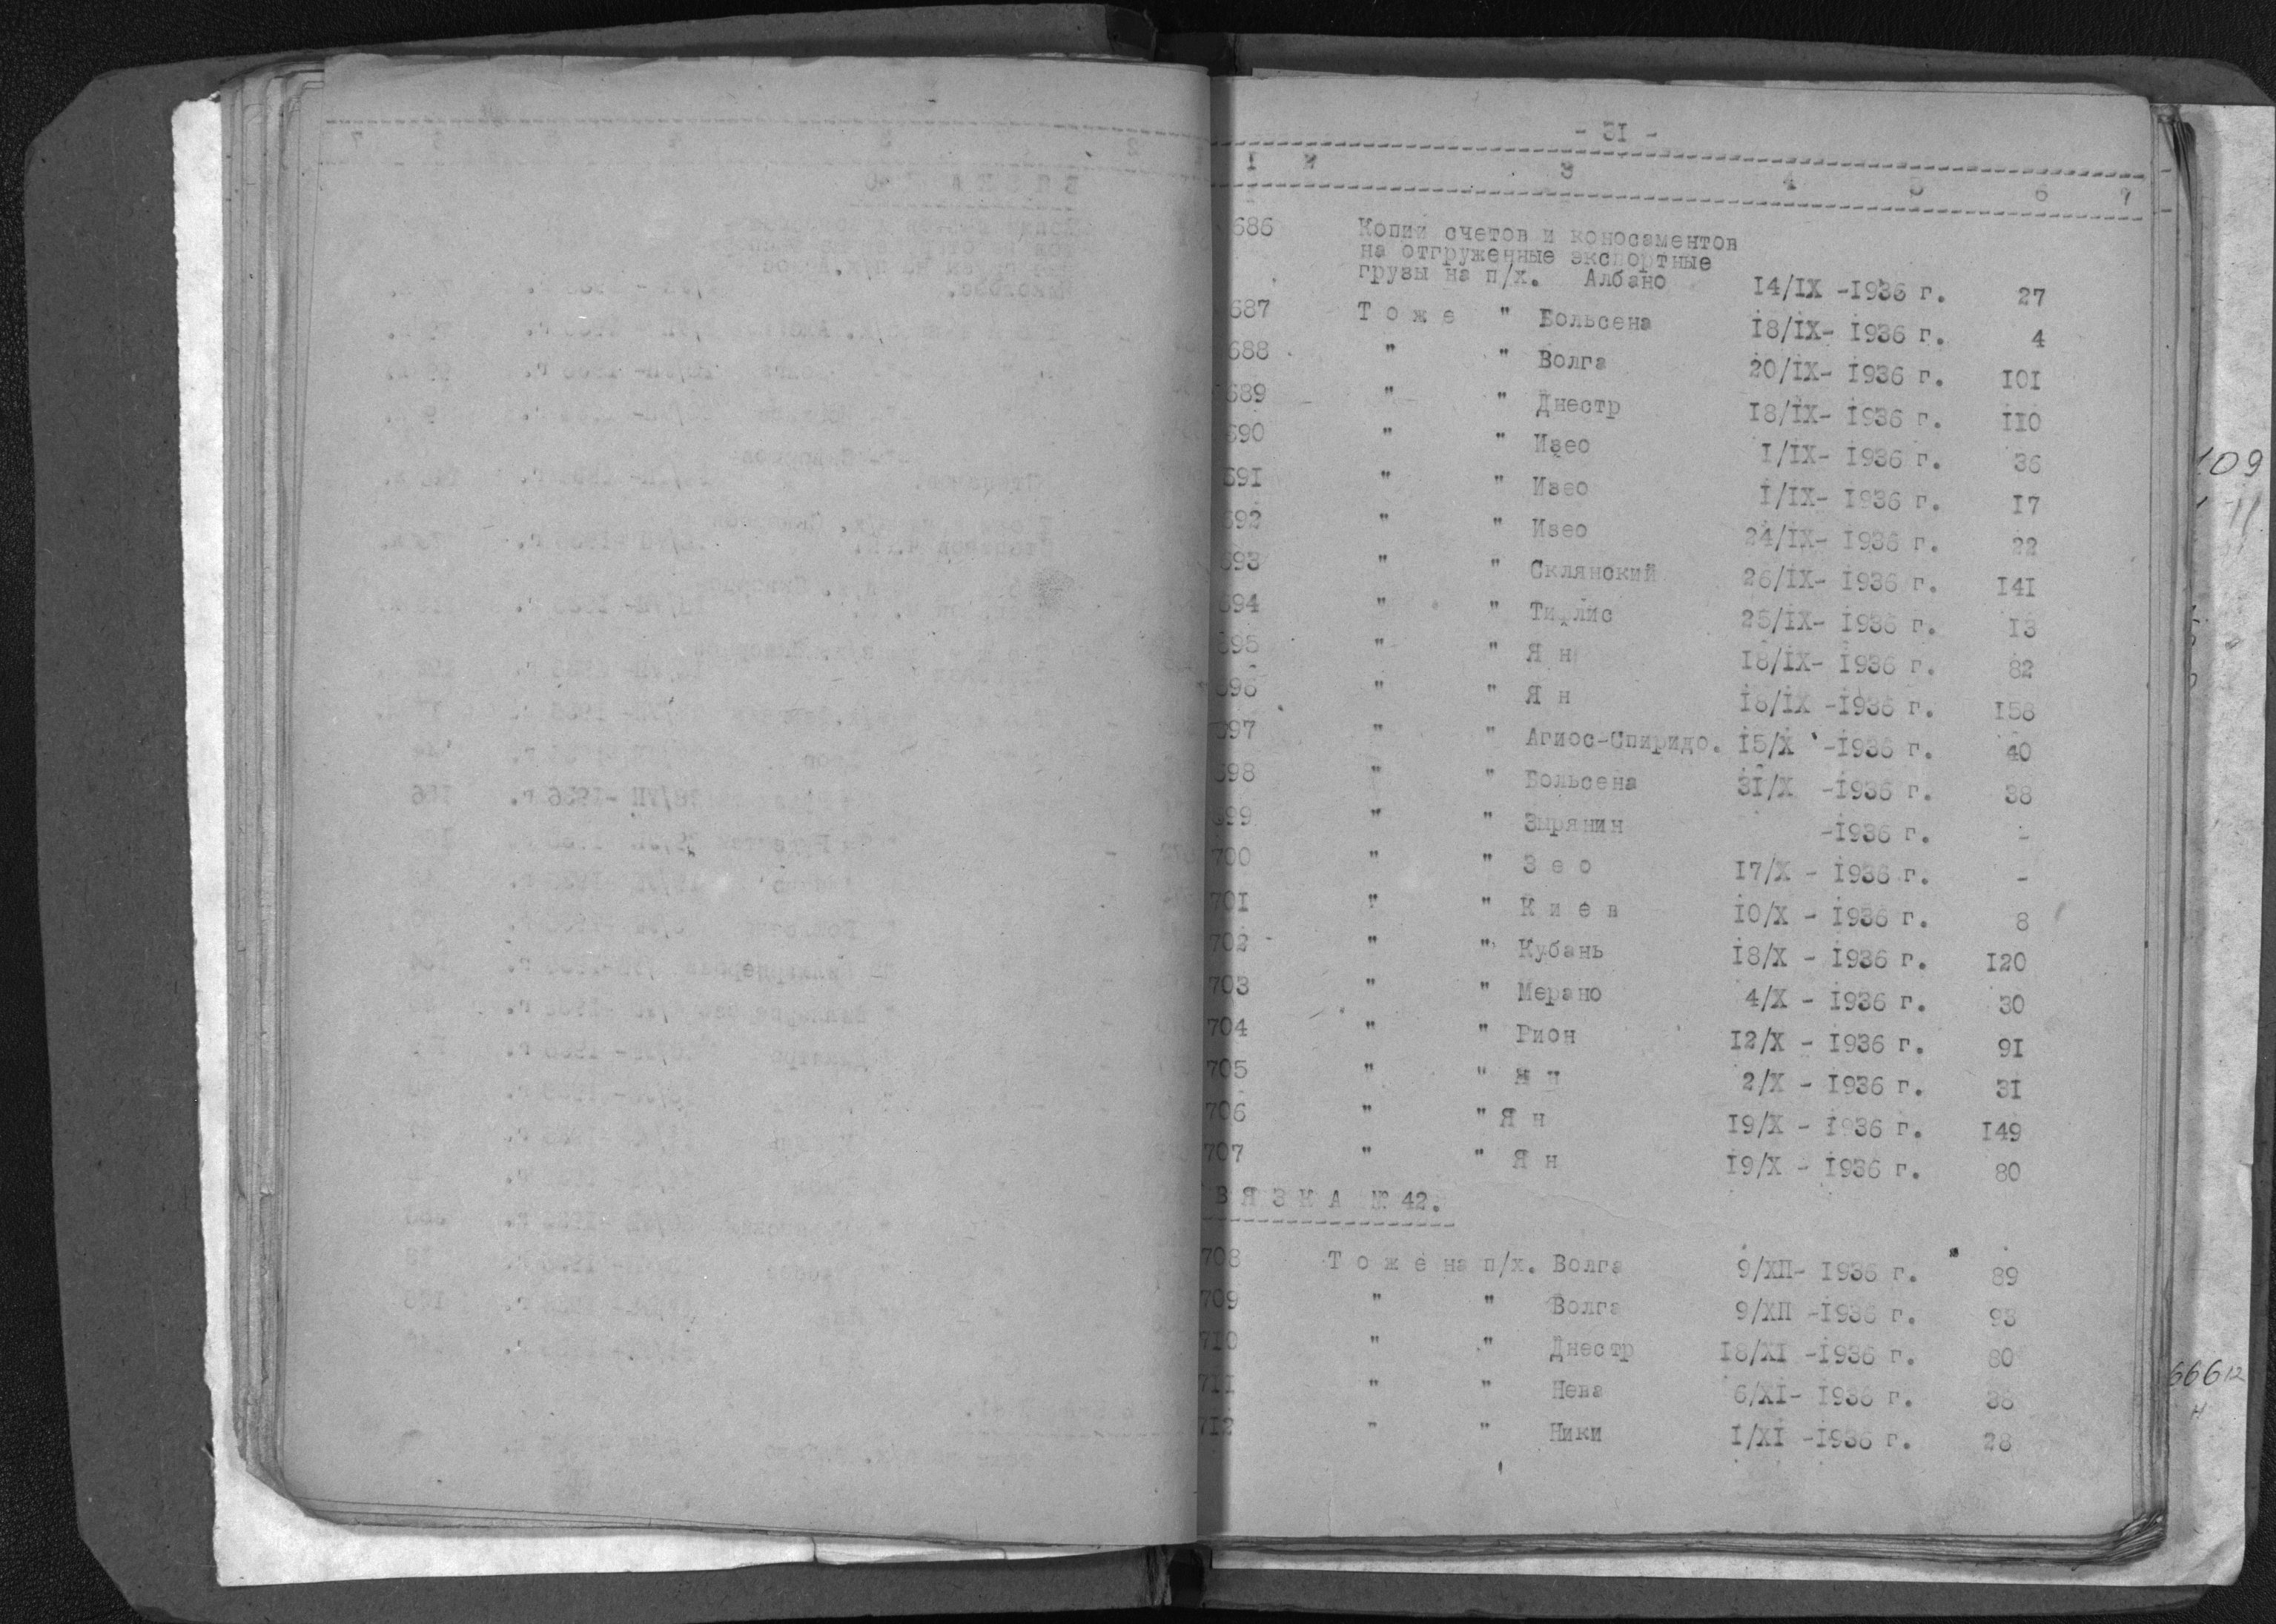 - 31 -
1 2 3 4 5 6 7
686 Копии счетов и коносаментов
на отгруженные экспортные
грузы на п/х. Албано 14/IX -1936 г. 27
687 Т о ж е " Больсена 18/IX- 1936 г. 4
688 " " Волга 20/IX- 1936 г. 101
689 " " Днестр 18/IX- 1936 г. 110
690 " " Изео 1/IX- 1936 г. 36
691 " " Изео 1/IX- 1936 г. 17
692 " " Изео 24/IX- 1936 г. 22
693 " " Склянский 26/IX- 1936 г. 141
694 " " Тифлис 25/IX- 1936 г. 13
695 " " Я н 18/IX- 1936 г. 82
696 " " Я н 18/IX -1936 г. 158
697 " " Агиос-Спиридо. 15/X -1936 г. 40
698 " " Больсена 31/X -1936 г. 38
699 " " Зырянин -1936 г. -
700 " " З е о 17/X - 1936 г. -
701 " " К и е в 10/X - 1936 г. 8
702 " " Кубань 18/X - 1936 г. 120
703 " " Мерано 4/X - 1936 г. 30
704 " " Рион 12/X - 1936 г. 91
705 " " 2/X - 1936 г. 31
706 " " Я н 19/X - 1936 г. 149
707 " " Я н 19/X - 1936 г. 80
В Я З К А № 42.
708 Т о ж е на п/х. Волга 9/XII- 1936 г. 89
709 " " Волга 9/XII -1936 г. 93
710 " " Днестр 18/XI -1936 г. 80
711 " " Нева 6/XI- 1936 г. 38
712 " " Ники 1/XI -1936 г. 28